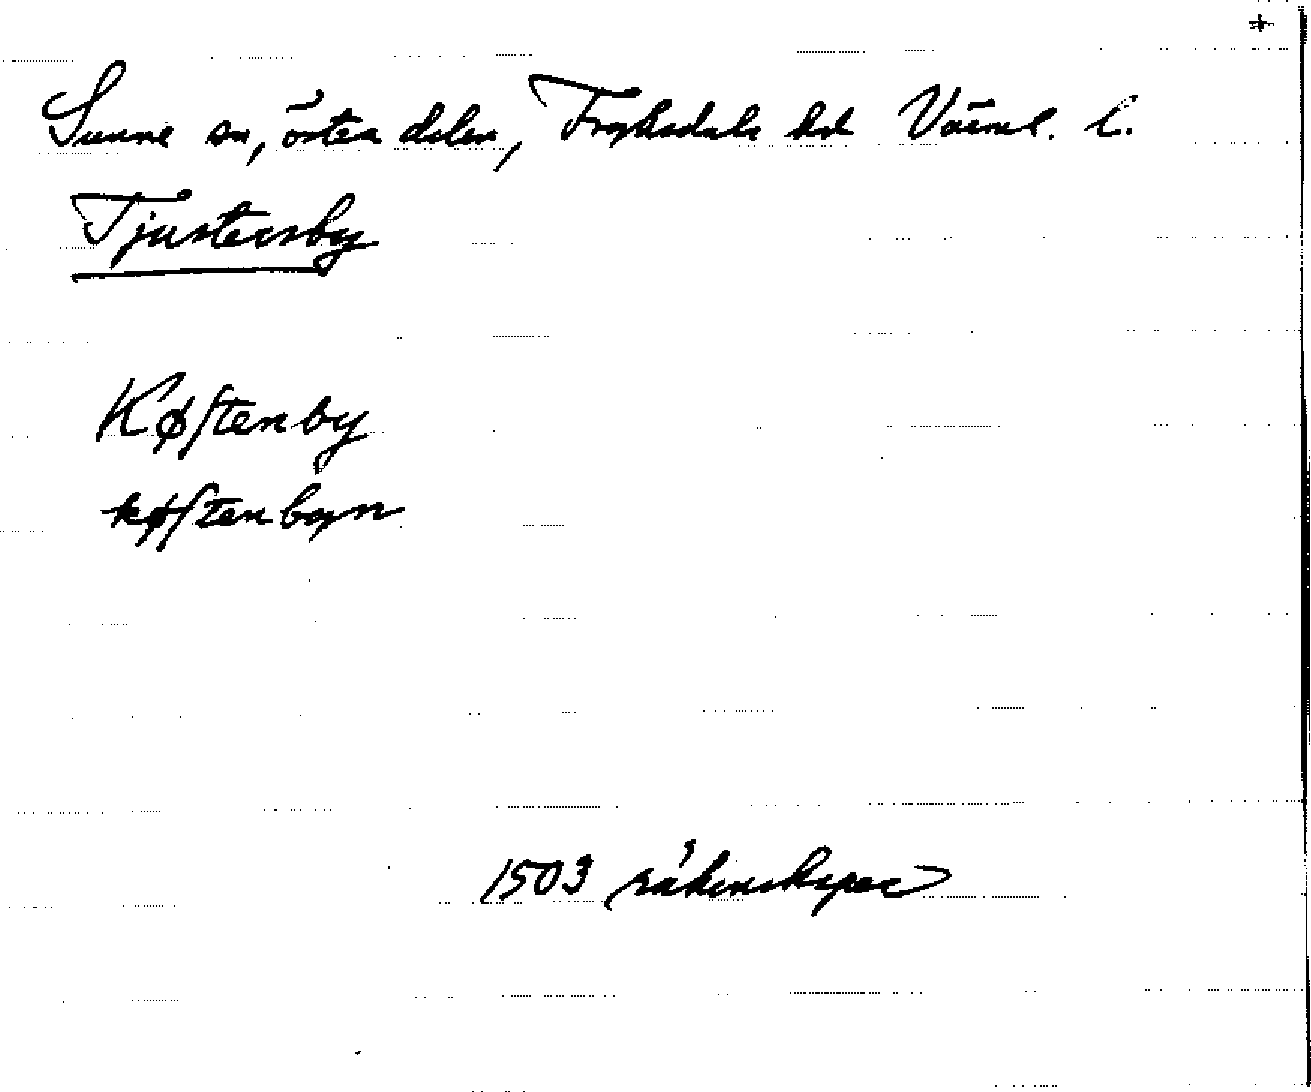 +
Sunne sn, östra delen, Fryksdals hd Värml. l.
Tjustersby
Køſtenby
køſtenbyn
1503 räkenskaper